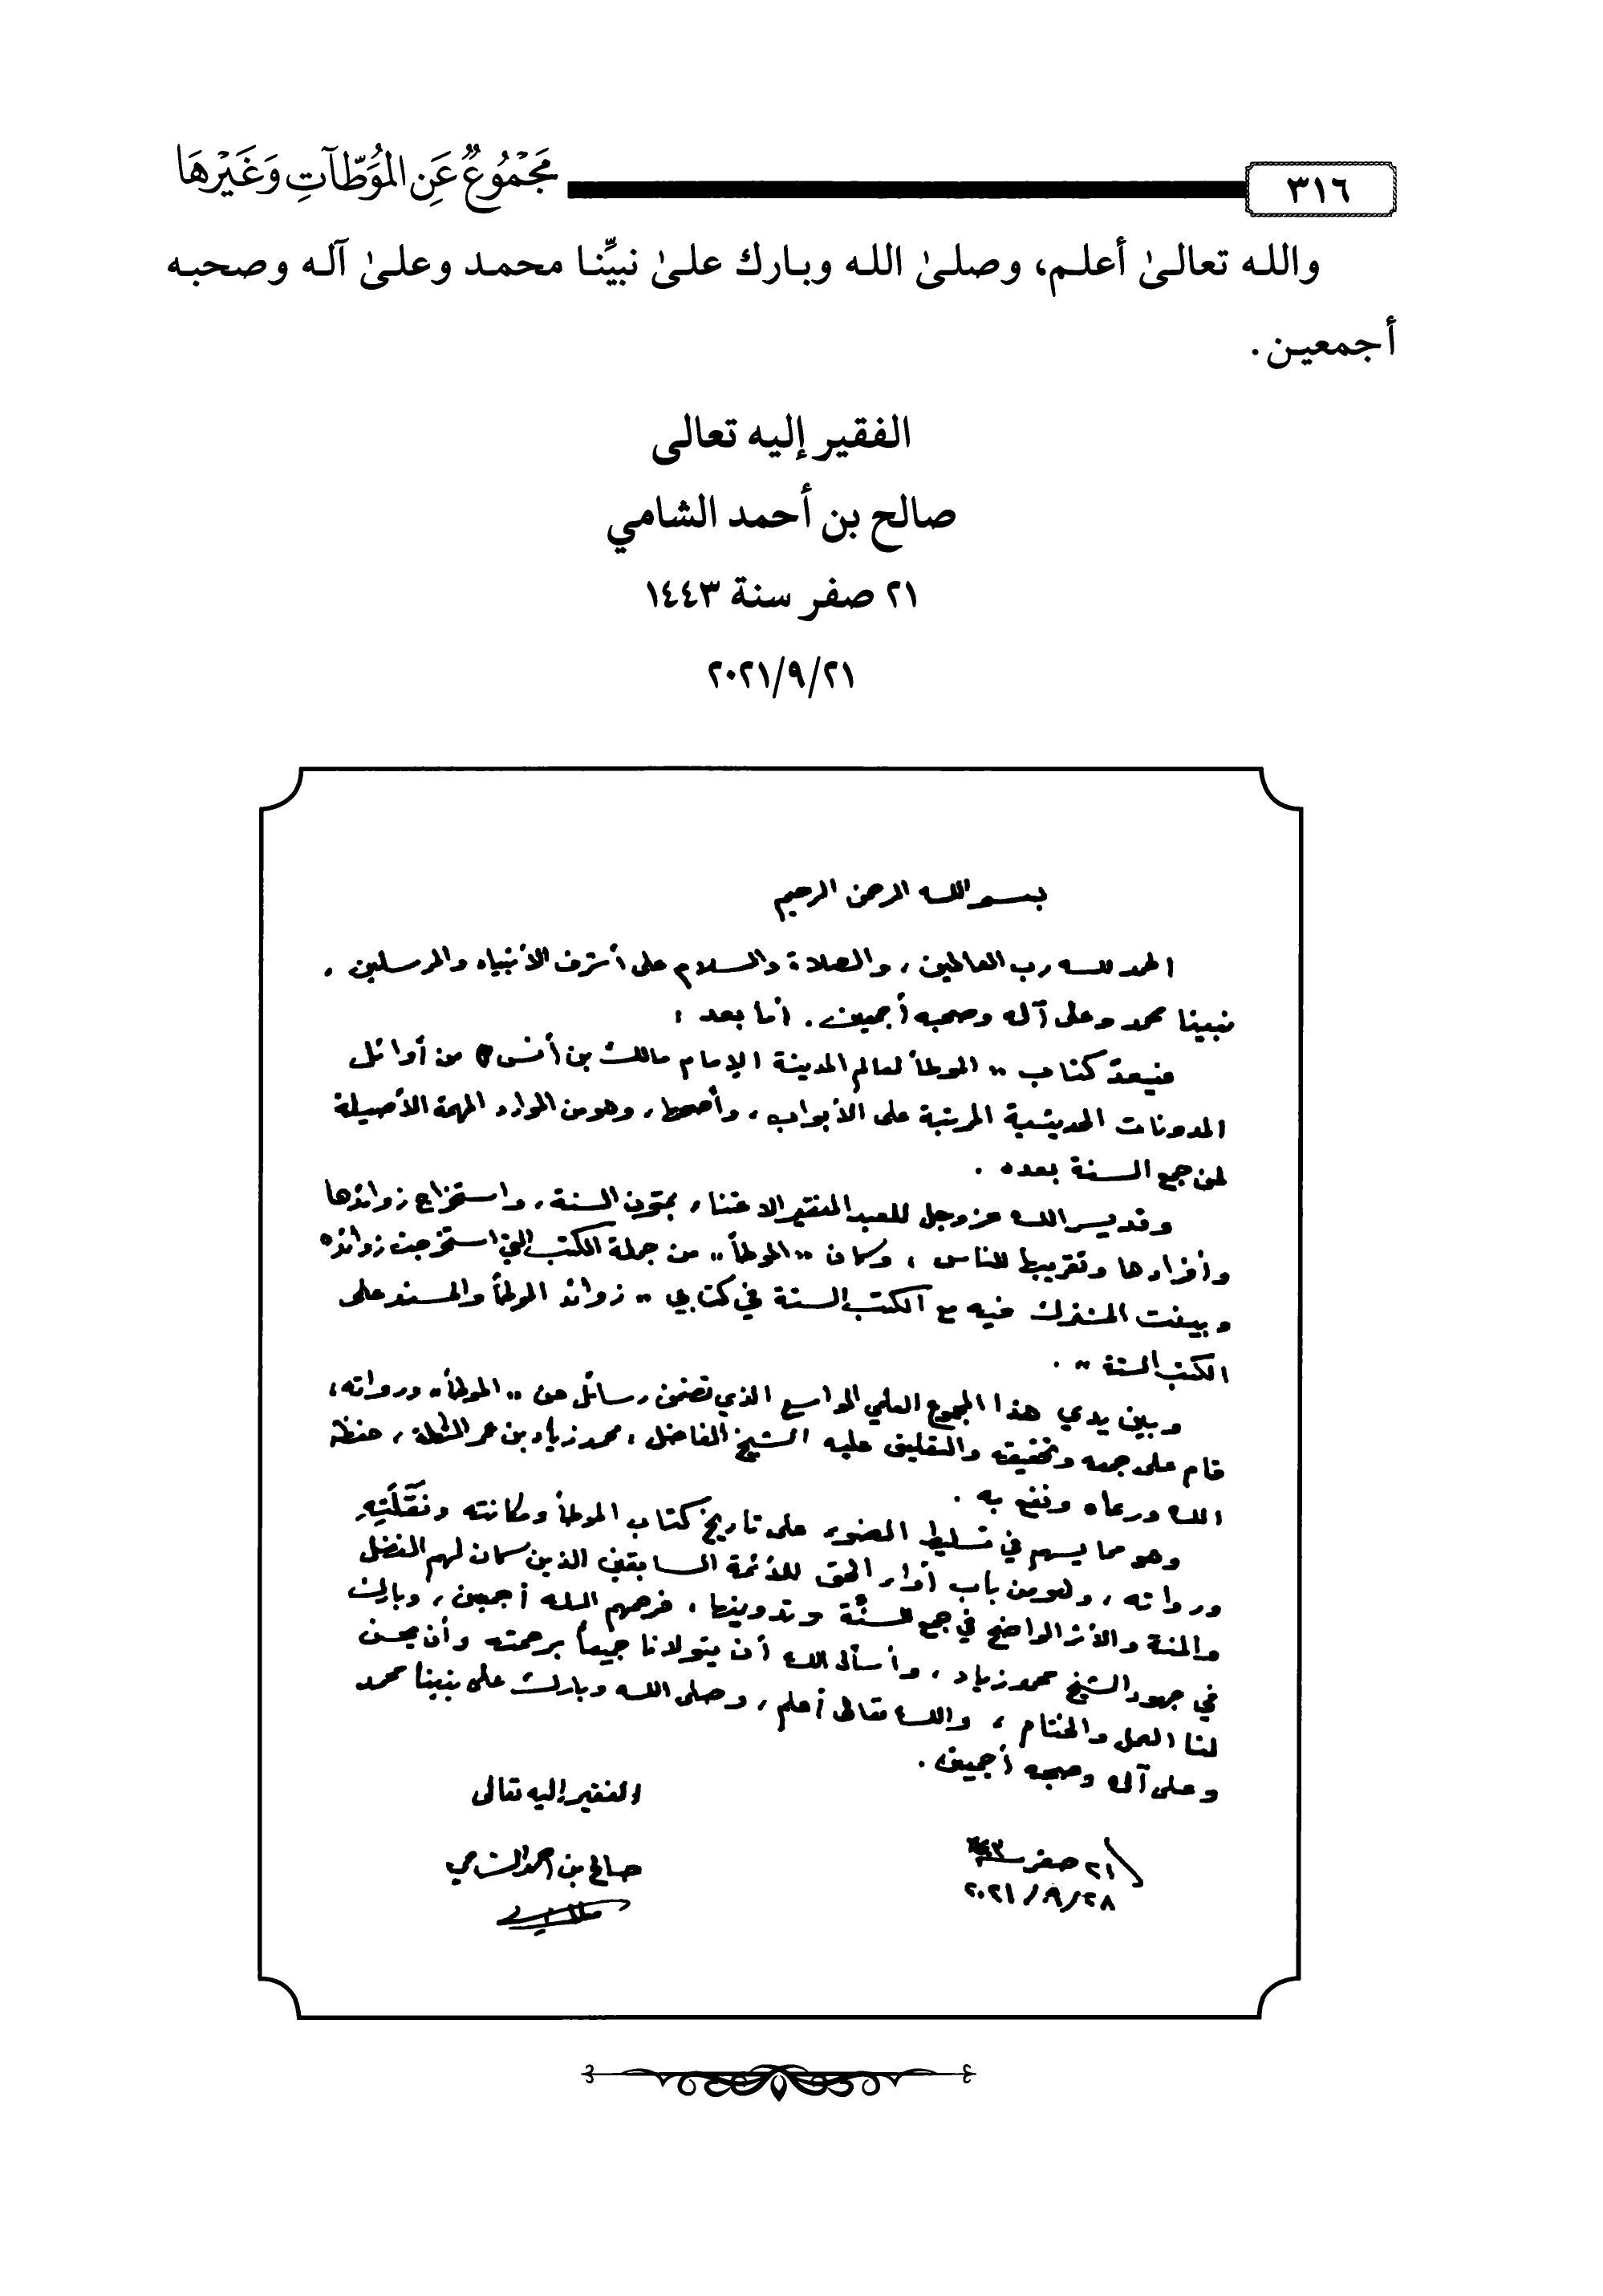 ٣١٦
مَجْمُوعٌ عَنِ المُوَطَّآتِ وَغَيْرِهَا
والله تعالىٰ أعلم، وصلىٰ الله وبارك علىٰ نبيِّنا محمد وعلىٰ آله وصحبه
أجمعين.
الفقير إليه تعالى
صالح بن أحمد الشامي
٢١ صفر سنة ١٤٤٣
٢٠٢١/٩/٢١
بسم الله الرحمن الرحيم
الحمد لله رب العالمين، والصلاة والسلام على أشرف الأنبياء والمرسلين،
نبينا محمد وعلى آله وصحبه أجمعين. أما بعد:
فيعدّ كتاب "الموطأ لعالم المدينة الإمام مالك بن أنس من أوائل
المدونات الحديثية المرتبة على الأبواب، وأصحها، وهو من الموارد المهمة الأصيلة
لمن جمع السنة بعده.
وقد يسر الله عز وجل للعبد الفقير الاعتناء بمتون السنة، واستخراج زوائدها
وأفرادها وتقريبها للناس، وكان "الموطأ" من جملة الكتب التي استخرجت زوائده
وبينت المشترك فيه مع الكتب الستة في كتابي "زوائد الموطأ والمسند على
الكتب الستة".
وبين يدي هذا المجموع العلمي الواسع الذي تضمن رسائل عن "الموطأ" ورواته،
قام على جمعه وتحقيقه والتعليق عليه الشيخ الفاضل: محمد زياد بن عمر التكلة، حفظه
الله ورعاه ونفع به.
وهو مما يسهم في تسليط الضوء على تاريخ كتاب الموطأ ومكانته ونَقَلَتِهِ
ورواته، وهو من باب أداء الحق للأئمة السابقين الذين كان لهم الفضل
والمنة والأثر الواضح في جمع السنَّة وتدوينها، فرحمهم الله أجمعين، وبارك
في جهود الشيخ محمد زياد، وأسأل الله أن يتولانا جميعاً برحمته وأن يحسن
لنا العمل والختام، والله تعالى أعلم، وصلى الله وبارك على نبينا محمد
وعلى آله وصحبه أجمعين.
الفقير إليه تعالى
صالح بن أحمد الشامي
٢١ صفر ١٤٤٣
٢٠٢١/٩/٢٨